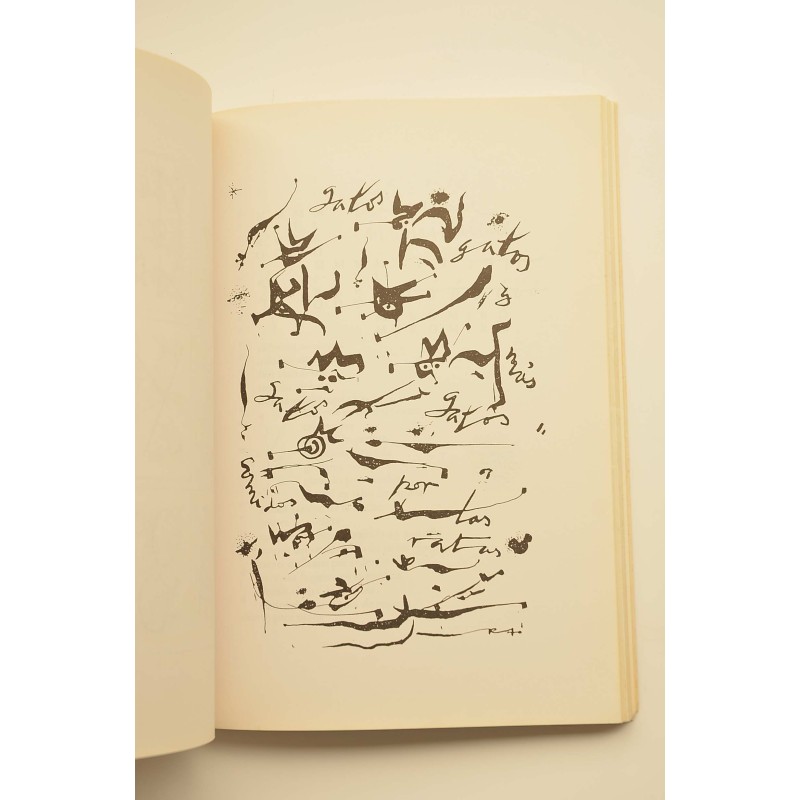 gatos
gatos
y
más
gatos
gatos
por
las
ratas